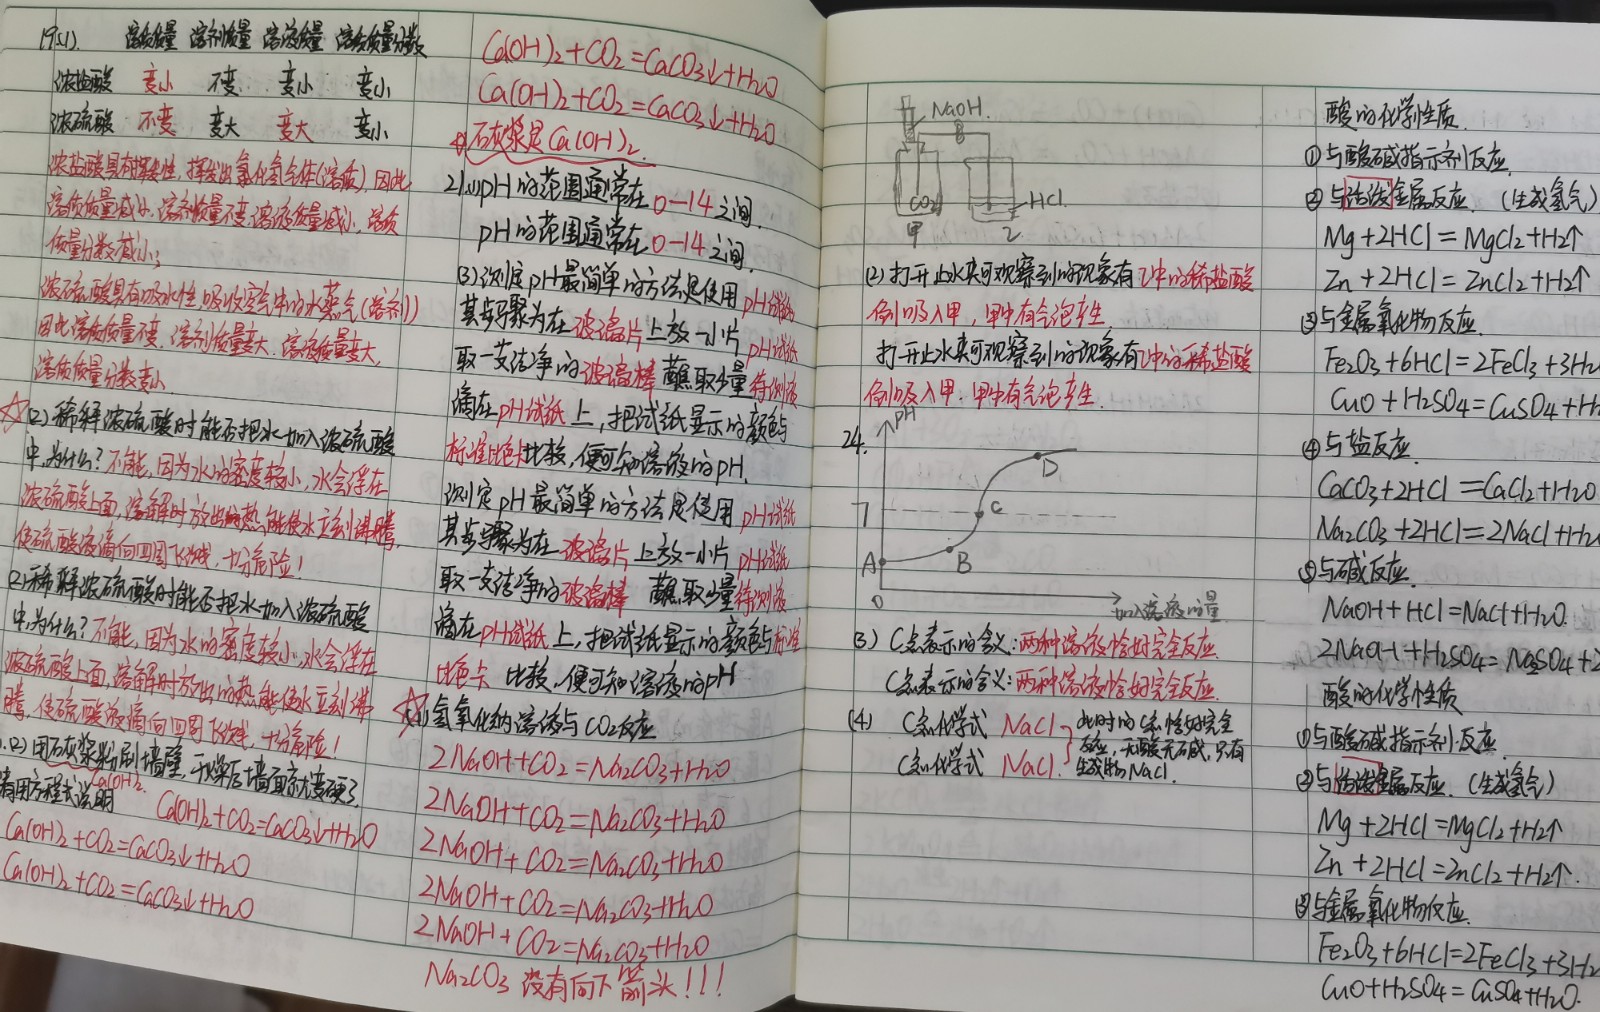 19.(1). 溶质质量 溶剂质量 溶液质量 溶质质量分数
浓盐酸 变小 不变 变小 变小
浓硫酸 不变 变大 变大 变小
浓盐酸具有挥发性,挥发出氯化氢气体(溶质),因此
溶质质量减小,溶剂质量不变,溶液质量减小,溶质
质量分数减小;
浓硫酸具有吸水性,吸收空气中的水蒸气(溶剂)
因此溶质质量不变,溶剂质量变大,溶液质量变大,
溶质质量分数变小
(2)稀释浓硫酸时能否把水加入浓硫酸
中,为什么?不能,因为水的密度较小,水会浮在
浓硫酸上面,溶解时放出的热能使水立刻沸腾,
使硫酸液滴向四周飞溅,十分危险!
(2)稀释浓硫酸时能否把水加入浓硫酸
中,为什么?不能,因为水的密度较小,水会浮在
浓硫酸上面,溶解时放出的热能使水立刻沸
腾,使硫酸液滴向四周飞溅,十分危险!
.(2)用石灰浆粉刷墙壁,干燥后墙面就变硬了
Ca(OH)2.
请用方程式说明 Ca(OH)2+CO2=CaCO3↓+H2O
Ca(OH)2+CO2=CaCO3↓+H2O
Ca(OH)2+CO2=CaCO3↓+H2O
Ca(OH)2+CO2=CaCO3↓+H2O
Ca(OH)2+CO2=CaCO3↓+H2O
石灰浆是Ca(OH)2.
21.(1)pH的范围通常在0-14之间.
pH的范围通常在0-14之间.
(3)测定pH最简单的方法是使用pH试纸
其步骤为在玻璃片上放一小片pH试纸
取一支洁净的玻璃棒蘸取少量待测液
滴在pH试纸上,把试纸显示的颜色与
标准比色卡比较,便可知溶液的pH.
测定pH最简单的方法是使用pH试纸
其步骤为在玻璃片上放一小片pH试纸
取一支洁净的玻璃棒 蘸取少量待测液
滴在pH试纸上,把试纸显示的颜色与标准
比色卡 比较,便可知溶液的pH
(1)氢氧化钠溶液与CO2反应
2NaOH+CO2=Na2CO3+H2O
2NaOH+CO2=Na2CO3+H2O
2NaOH+CO2=Na2CO3+H2O
2NaOH+CO2=Na2CO3+H2O
2NaOH+CO2=Na2CO3+H2O
Na2CO3 没有向下箭头!!!
NaOH.
CO2
HCl.
甲
乙
(2)打开止水夹可观察到的现象有乙中的稀盐酸
倒吸入甲,甲中有气泡产生
打开止水夹可观察到的现象有乙中的稀盐酸
倒吸入甲,甲中有气泡产生.
24.
pH
D
7
C
A
B
0
加入溶液的量
(3)C点表示的含义:两种溶液恰好完全反应.
C点表示的含义:两种溶液恰好完全反应.
(4) C点化学式 NaCl 此时的C点恰好完全
反应,无酸无碱,只有
C点化学式 NaCl. 生成物NaCl.
酸的化学性质.
①与酸碱指示剂反应.
②与活泼金属反应.(生成氢气)
Mg+2HCl=MgCl2+H2↑
Zn+2HCl=ZnCl2+H2↑
③与金属氧化物反应.
Fe2O3+6HCl=2FeCl3+3H2
CuO+H2SO4=CuSO4+H2
④与盐反应.
CaCO3+2HCl=CaCl2+H2O
Na2CO3+2HCl=2NaCl+H2O
⑤与碱反应.
NaOH+HCl=NaCl+H2O.
2NaOH+H2SO4=Na2SO4+2
酸的化学性质
①与酸碱指示剂反应.
②与活泼金属反应.(生成氢气)
Mg+2HCl=MgCl2+H2↑
Zn+2HCl=ZnCl2+H2↑.
③与金属氧化物反应.
Fe2O3+6HCl=2FeCl3+3H2
CuO+H2SO4=CuSO4+H2O.